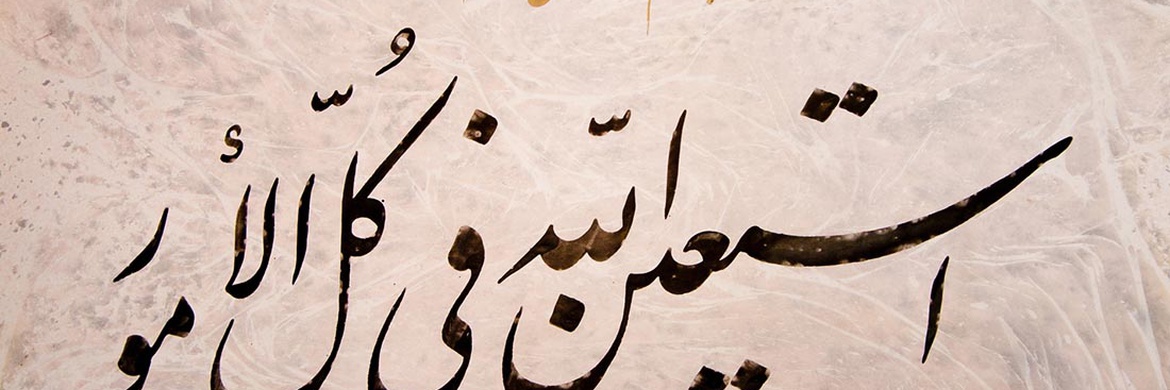 استعين اللّه في كُلّ الأمور